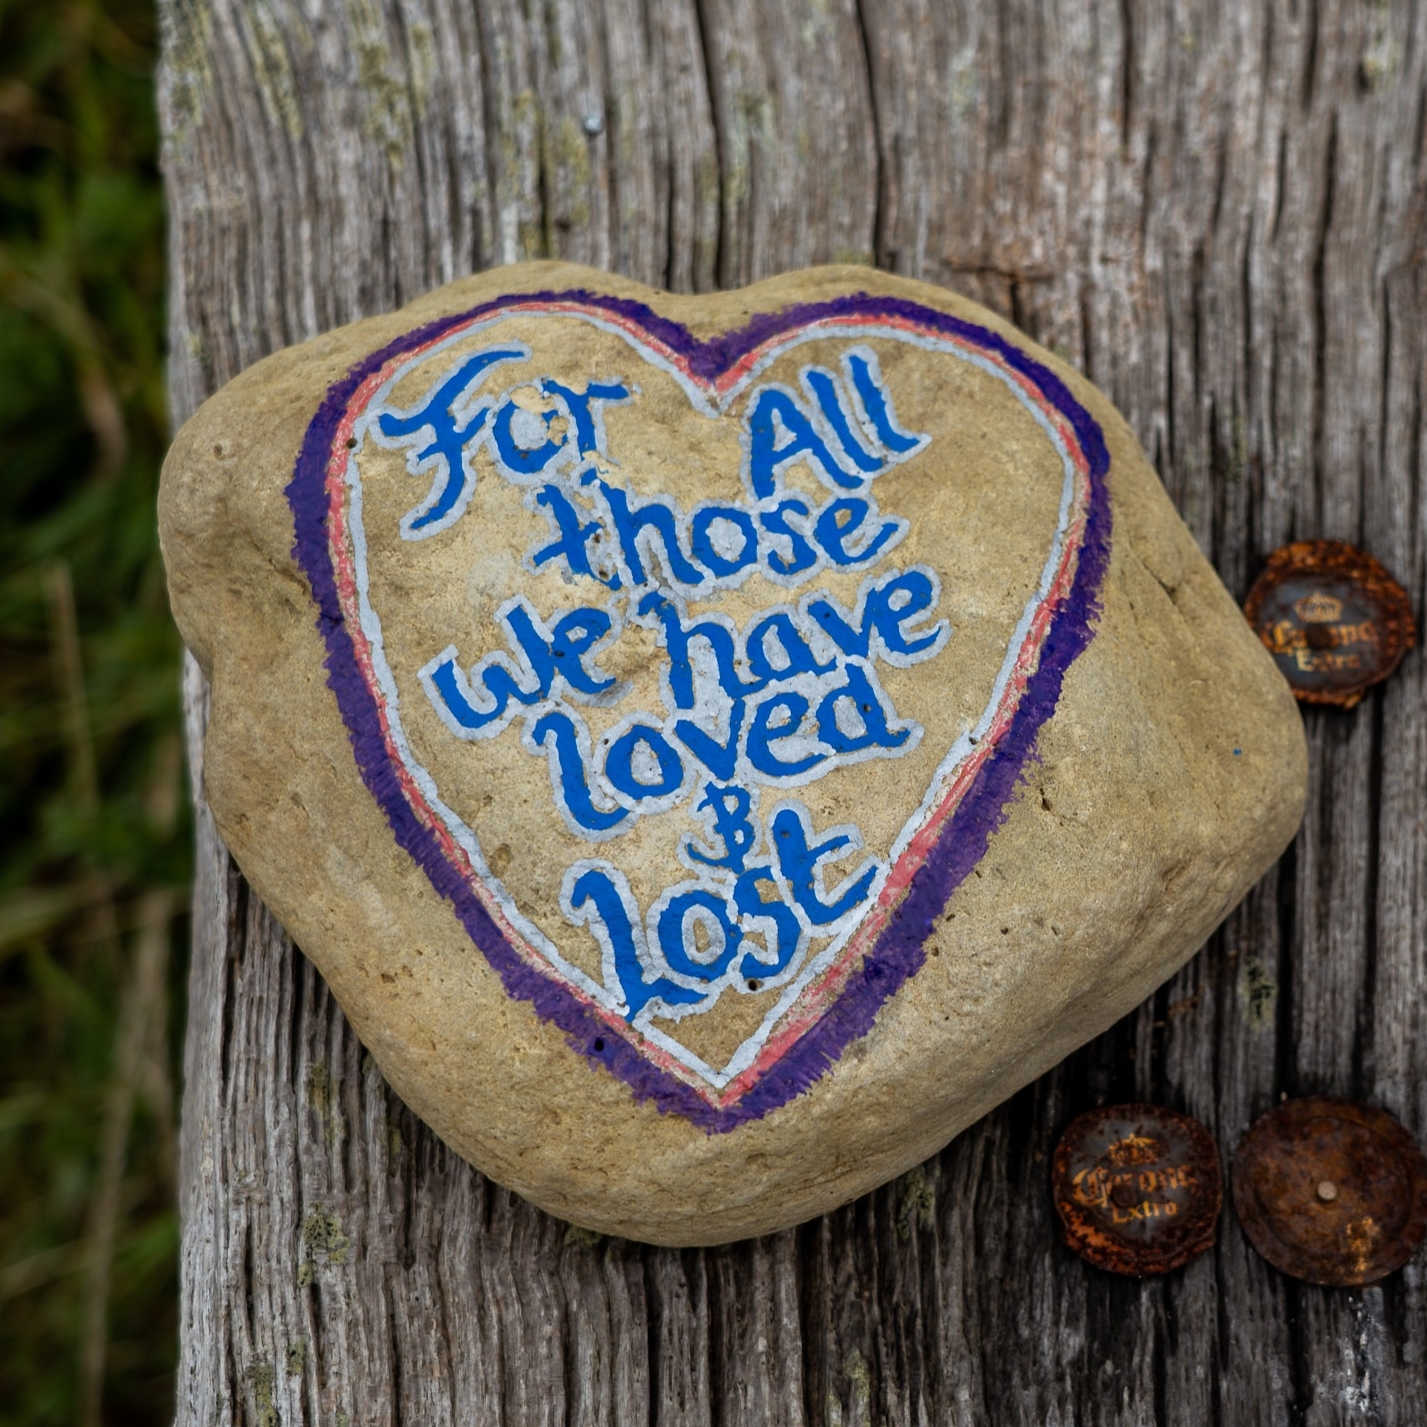 For All
those
we have
loved
&
Lost
Corona
Extra
Corona
Extra